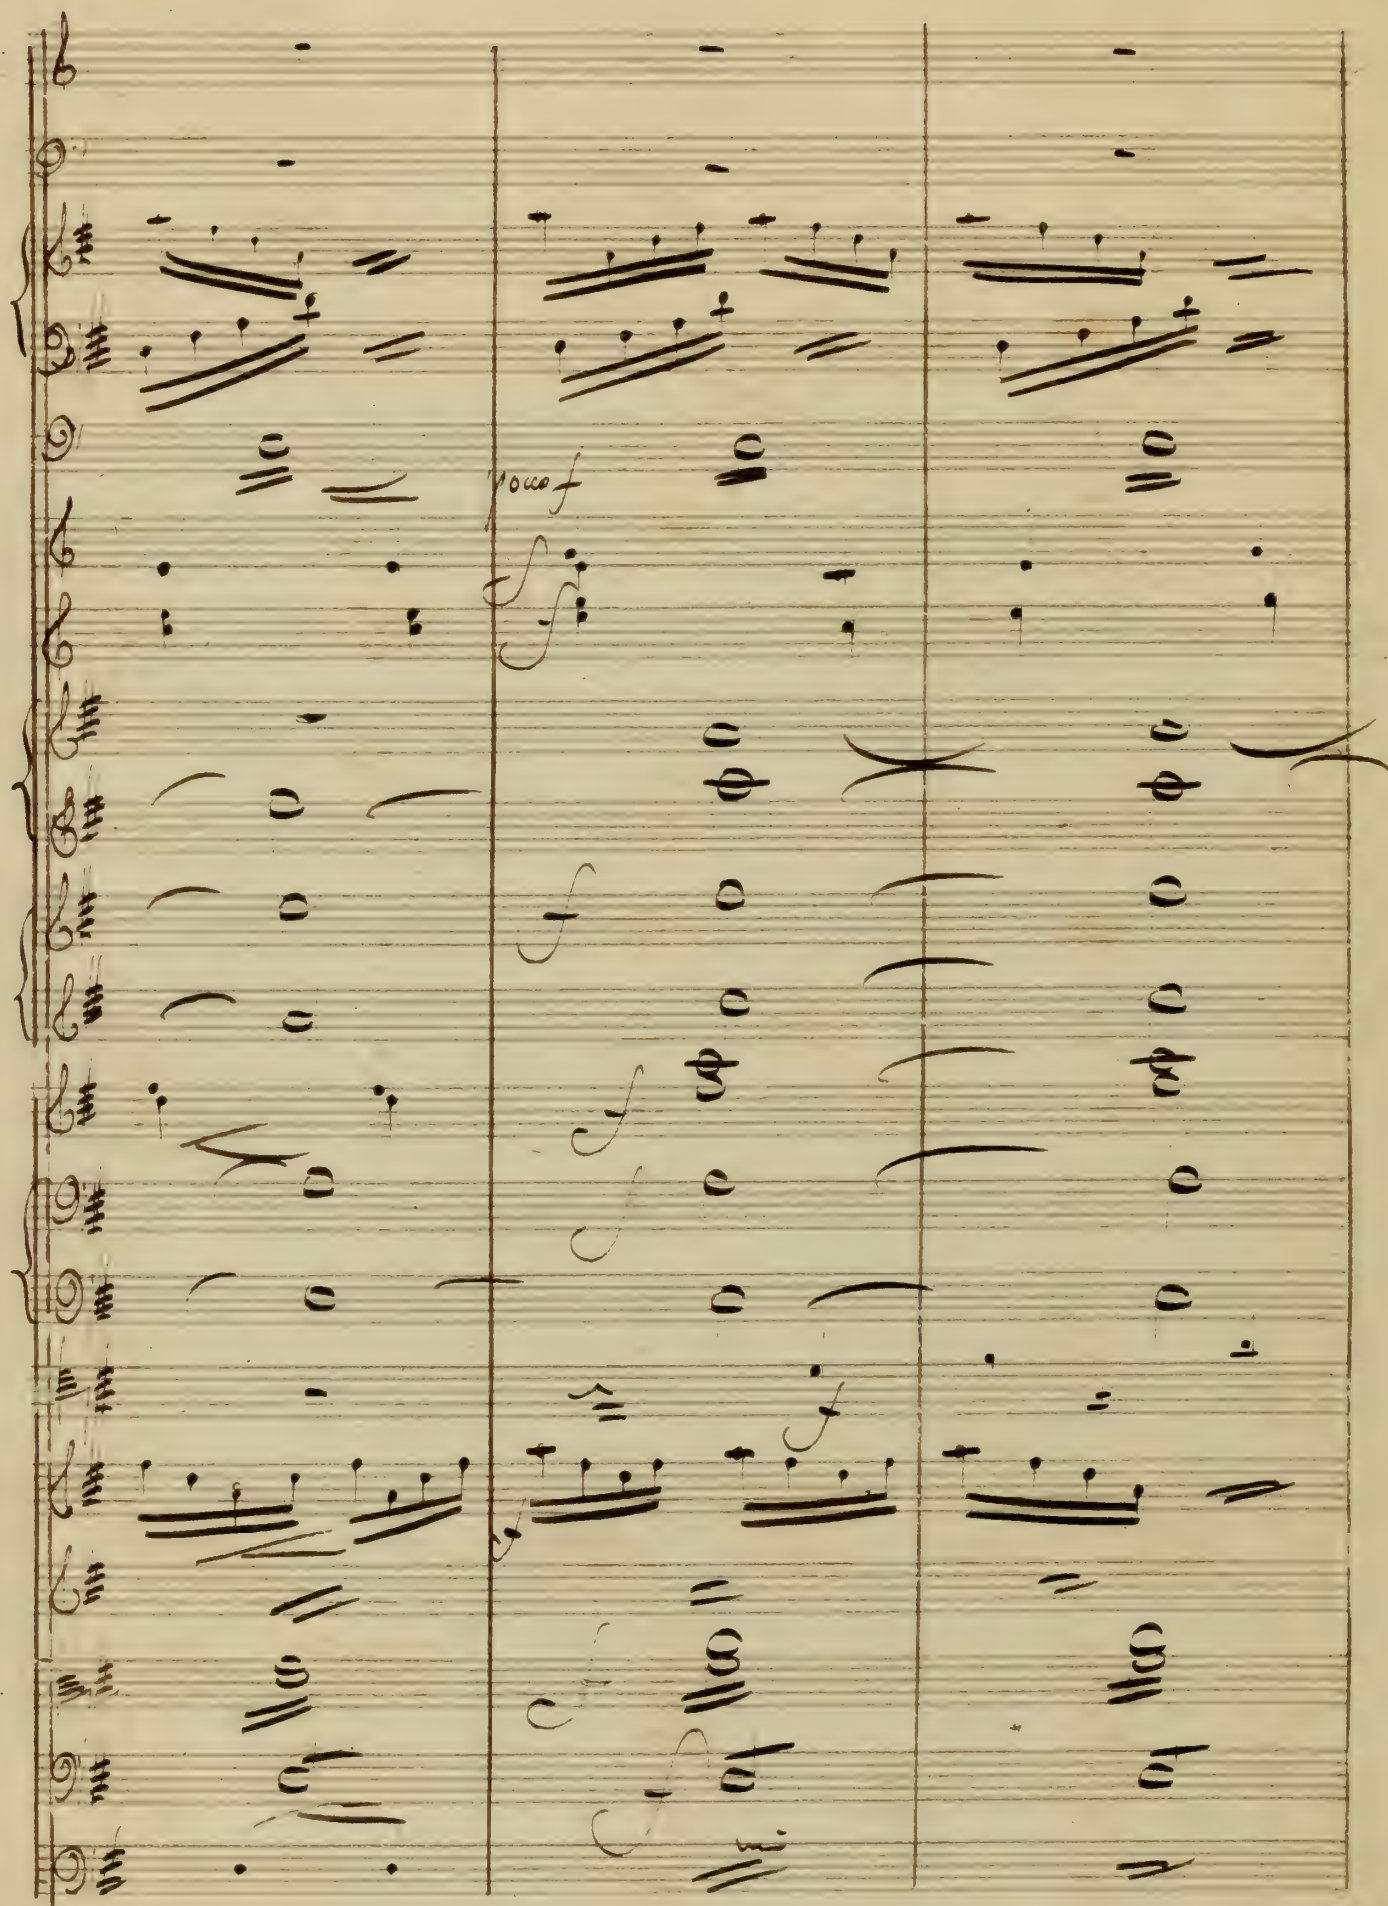 pocof
f
f
f
f
f
f
f
f
f